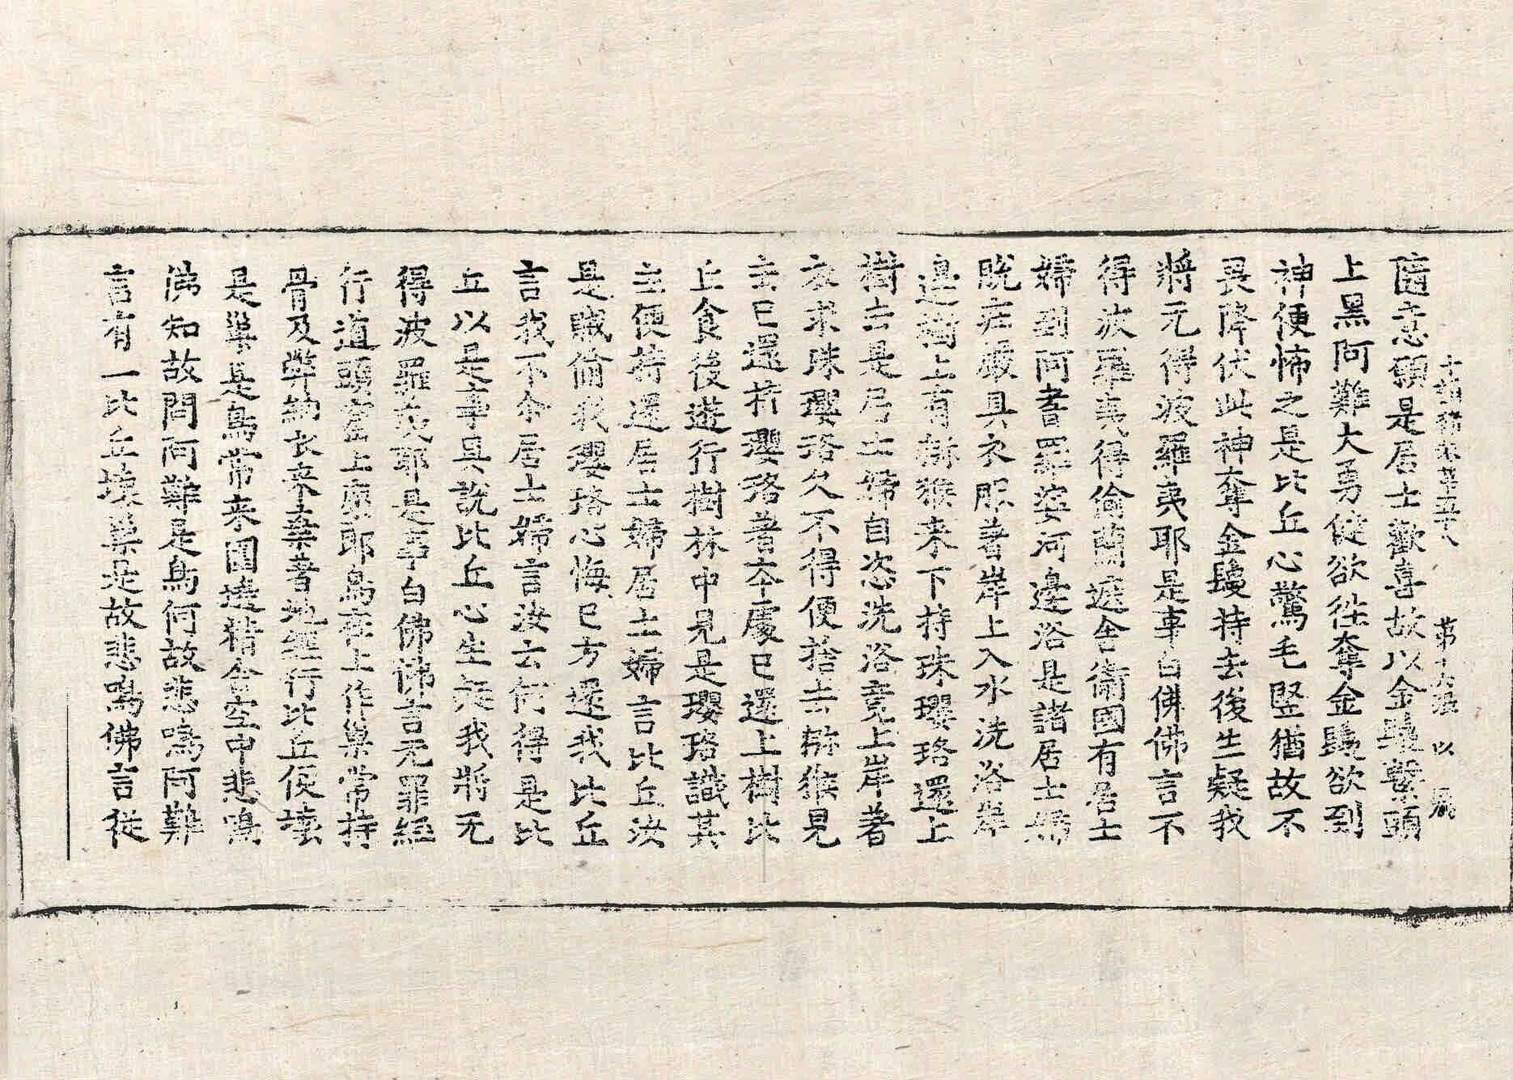 十誦律 第五十八 第十六張 以
隨意願是居士歡喜故以金鬘繫頭
上黑阿難大勇健欲往奪金鬘欲到
神便怖之是比丘心驚毛竪猶故不
畏降伏此神奪金鬘持去後生疑我
將无得波羅夷耶是事白佛佛言不
得波羅夷得偷蘭遮舍衛國有居士
婦到阿耆羅婆河邊浴是諸居士婦
脫莊嚴具衣服著岸上入水洗浴岸
邊樹上有獼猴来下持珠瓔珞還上
樹去是居士婦自恣洗浴竟上岸著
衣求珠瓔珞久不得便捨去獼猴見
去已還持瓔珞著本處已還上樹比
丘食後遊行樹林中見是瓔珞識其
主便持還居士婦居士婦言比丘汝
是賊偷我瓔珞心悔已方還我比丘
言我不偷居士婦言汝云何得是比
丘以是事具說比丘心生疑我將无
得波羅夷耶是事白佛佛言无罪經
行道頭窟上 耶烏在上作巢常持
骨及弊納衣来棄著地經行比丘便壞
是巢是烏常来圍遶精舍空中悲鳴
佛知故問阿難是烏何故悲鳴阿難
言有一比丘壞巢是故悲鳴佛言從